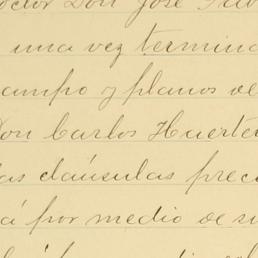 octor Don José
una vez termina
campo y planos de
Don Carlos Huerter
las cláusulas prec
á por medio de su